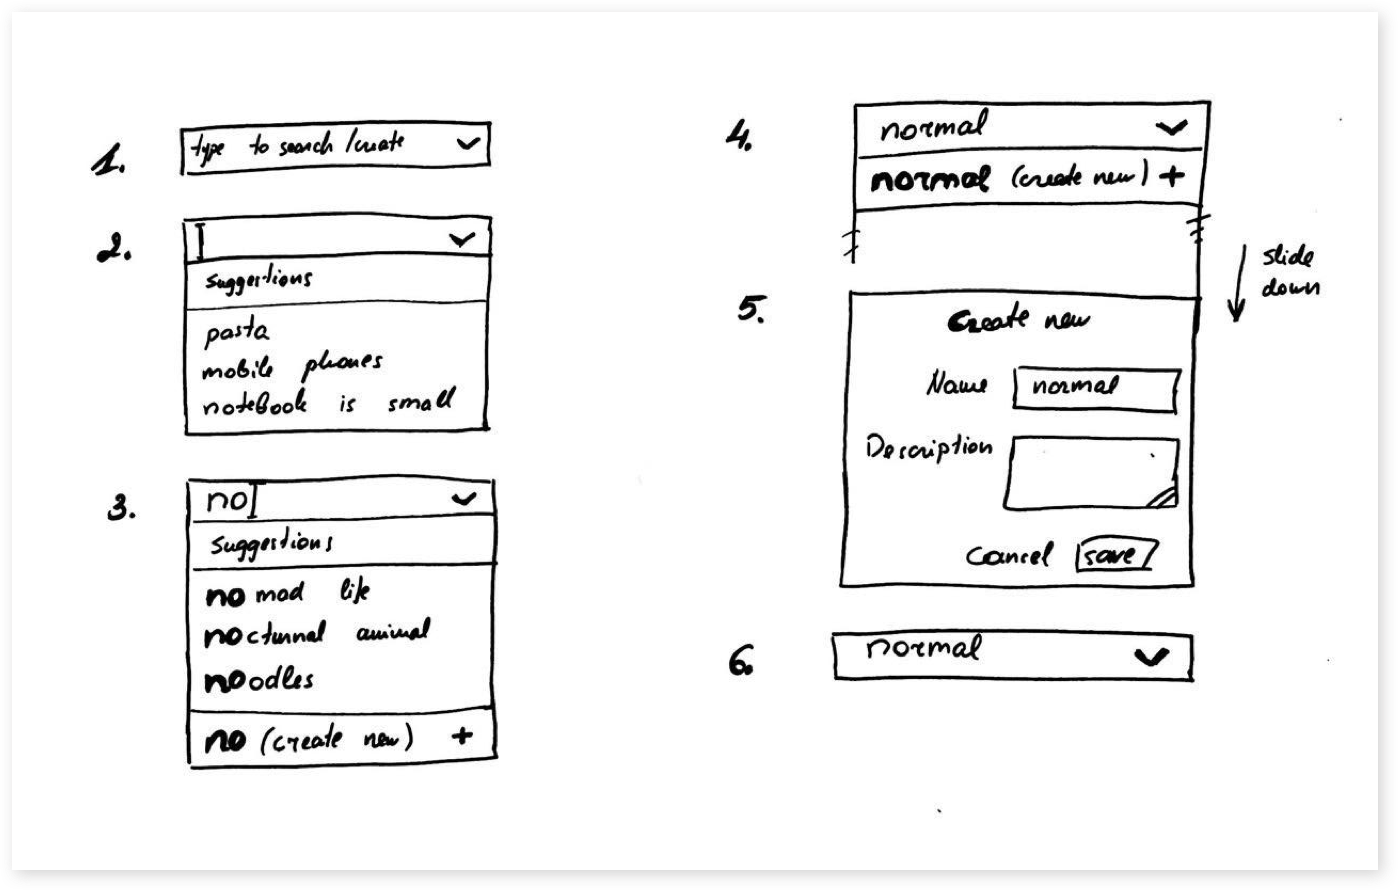 1.
type to search / create
2.
suggestions
pasta
mobile phones
notebook is small
3.
no
suggestions
nomad life
nocturnal animal
noodles
no (create new) +
4.
normal
normal (create new) +
slide
down
5.
Create new
Name normal
Description
Cancel save
6.
normal